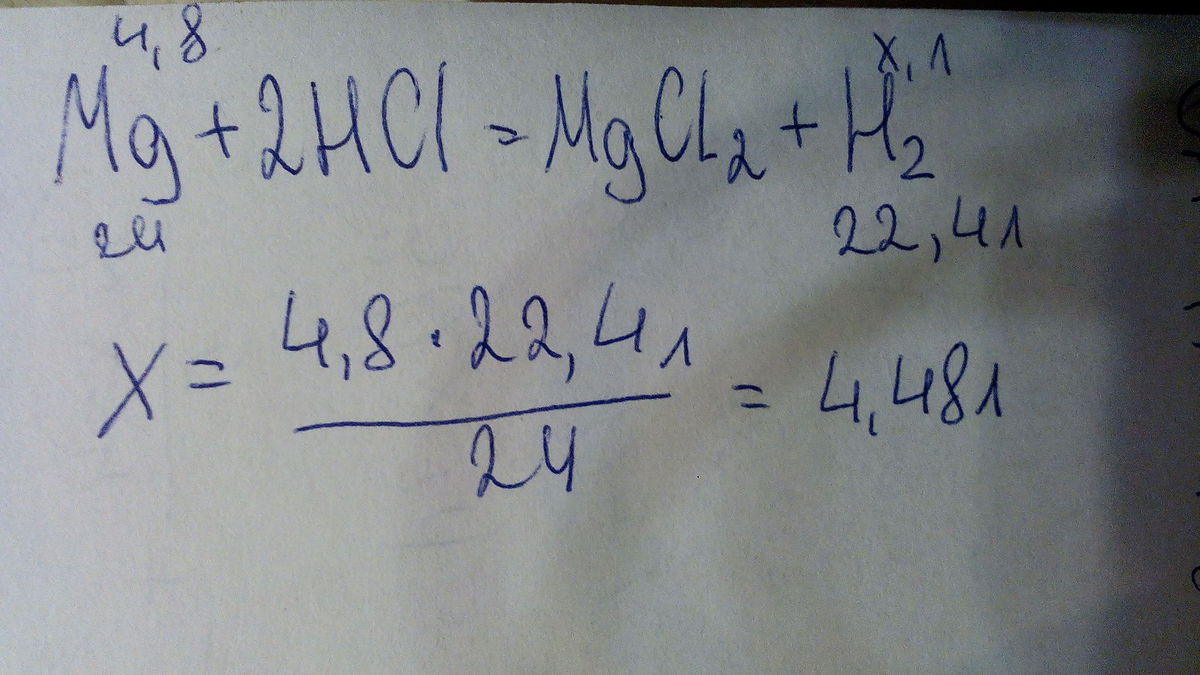 4,8 х, л
Mg + 2HCl = MgCl₂ + H₂
24 22,4л
X = 4,8 · 22,4л / 24 = 4,48л